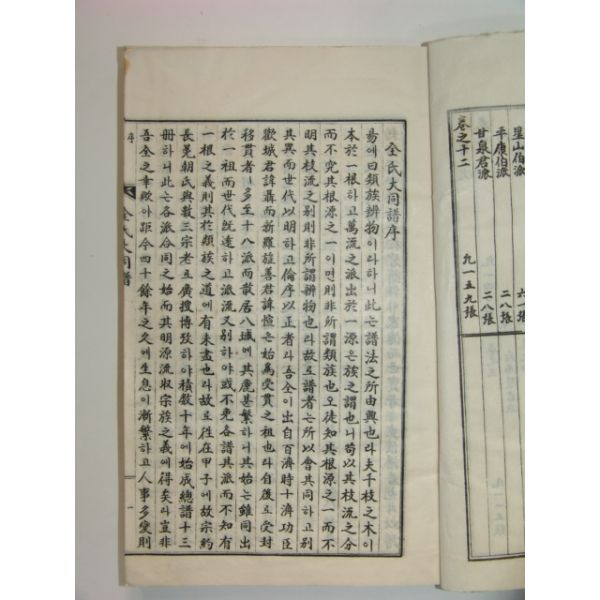 星山伯派 六一張
平康伯派 二八張
甘泉君派 二八張
卷之十二
九一五九張
全氏大同譜序
易에曰類族辨物이라하니此는譜法之所由興也라夫千枝之木이
本於一根하고萬流之派出於一源은族之謂也니苟以其枝流之分
而不究其根源之一이면則非所謂類族也오徒知其根源之一而不
明其枝流之別則非所謂辨物也라故로譜者는所以會其同하고別
其異而世代以明하고倫序以正者라吾全이出自百濟時十濟功臣
歡城君諱聶而新羅旌善君諱愃은始爲受貫之祖也라自後로受封
移貫者ㅣ多至十八派而散居八域에其麗甚繁하니其始는雖同出
於一祖而世代旣遠하고派流又別하야或不免各譜其派而不知有
一根之義則其於類族之道에有未盡也라故로往在甲子에故宗約
長冕朝氏與數三宗老로廣搜博攷하야積數十年에始成總譜十三
冊하니此는各派合同之始而其明源流収宗族之義에得矣라豈非
吾全之幸歟아距今四十餘年之久에生息이漸繁하고人事多變則
序
全氏大同譜
一